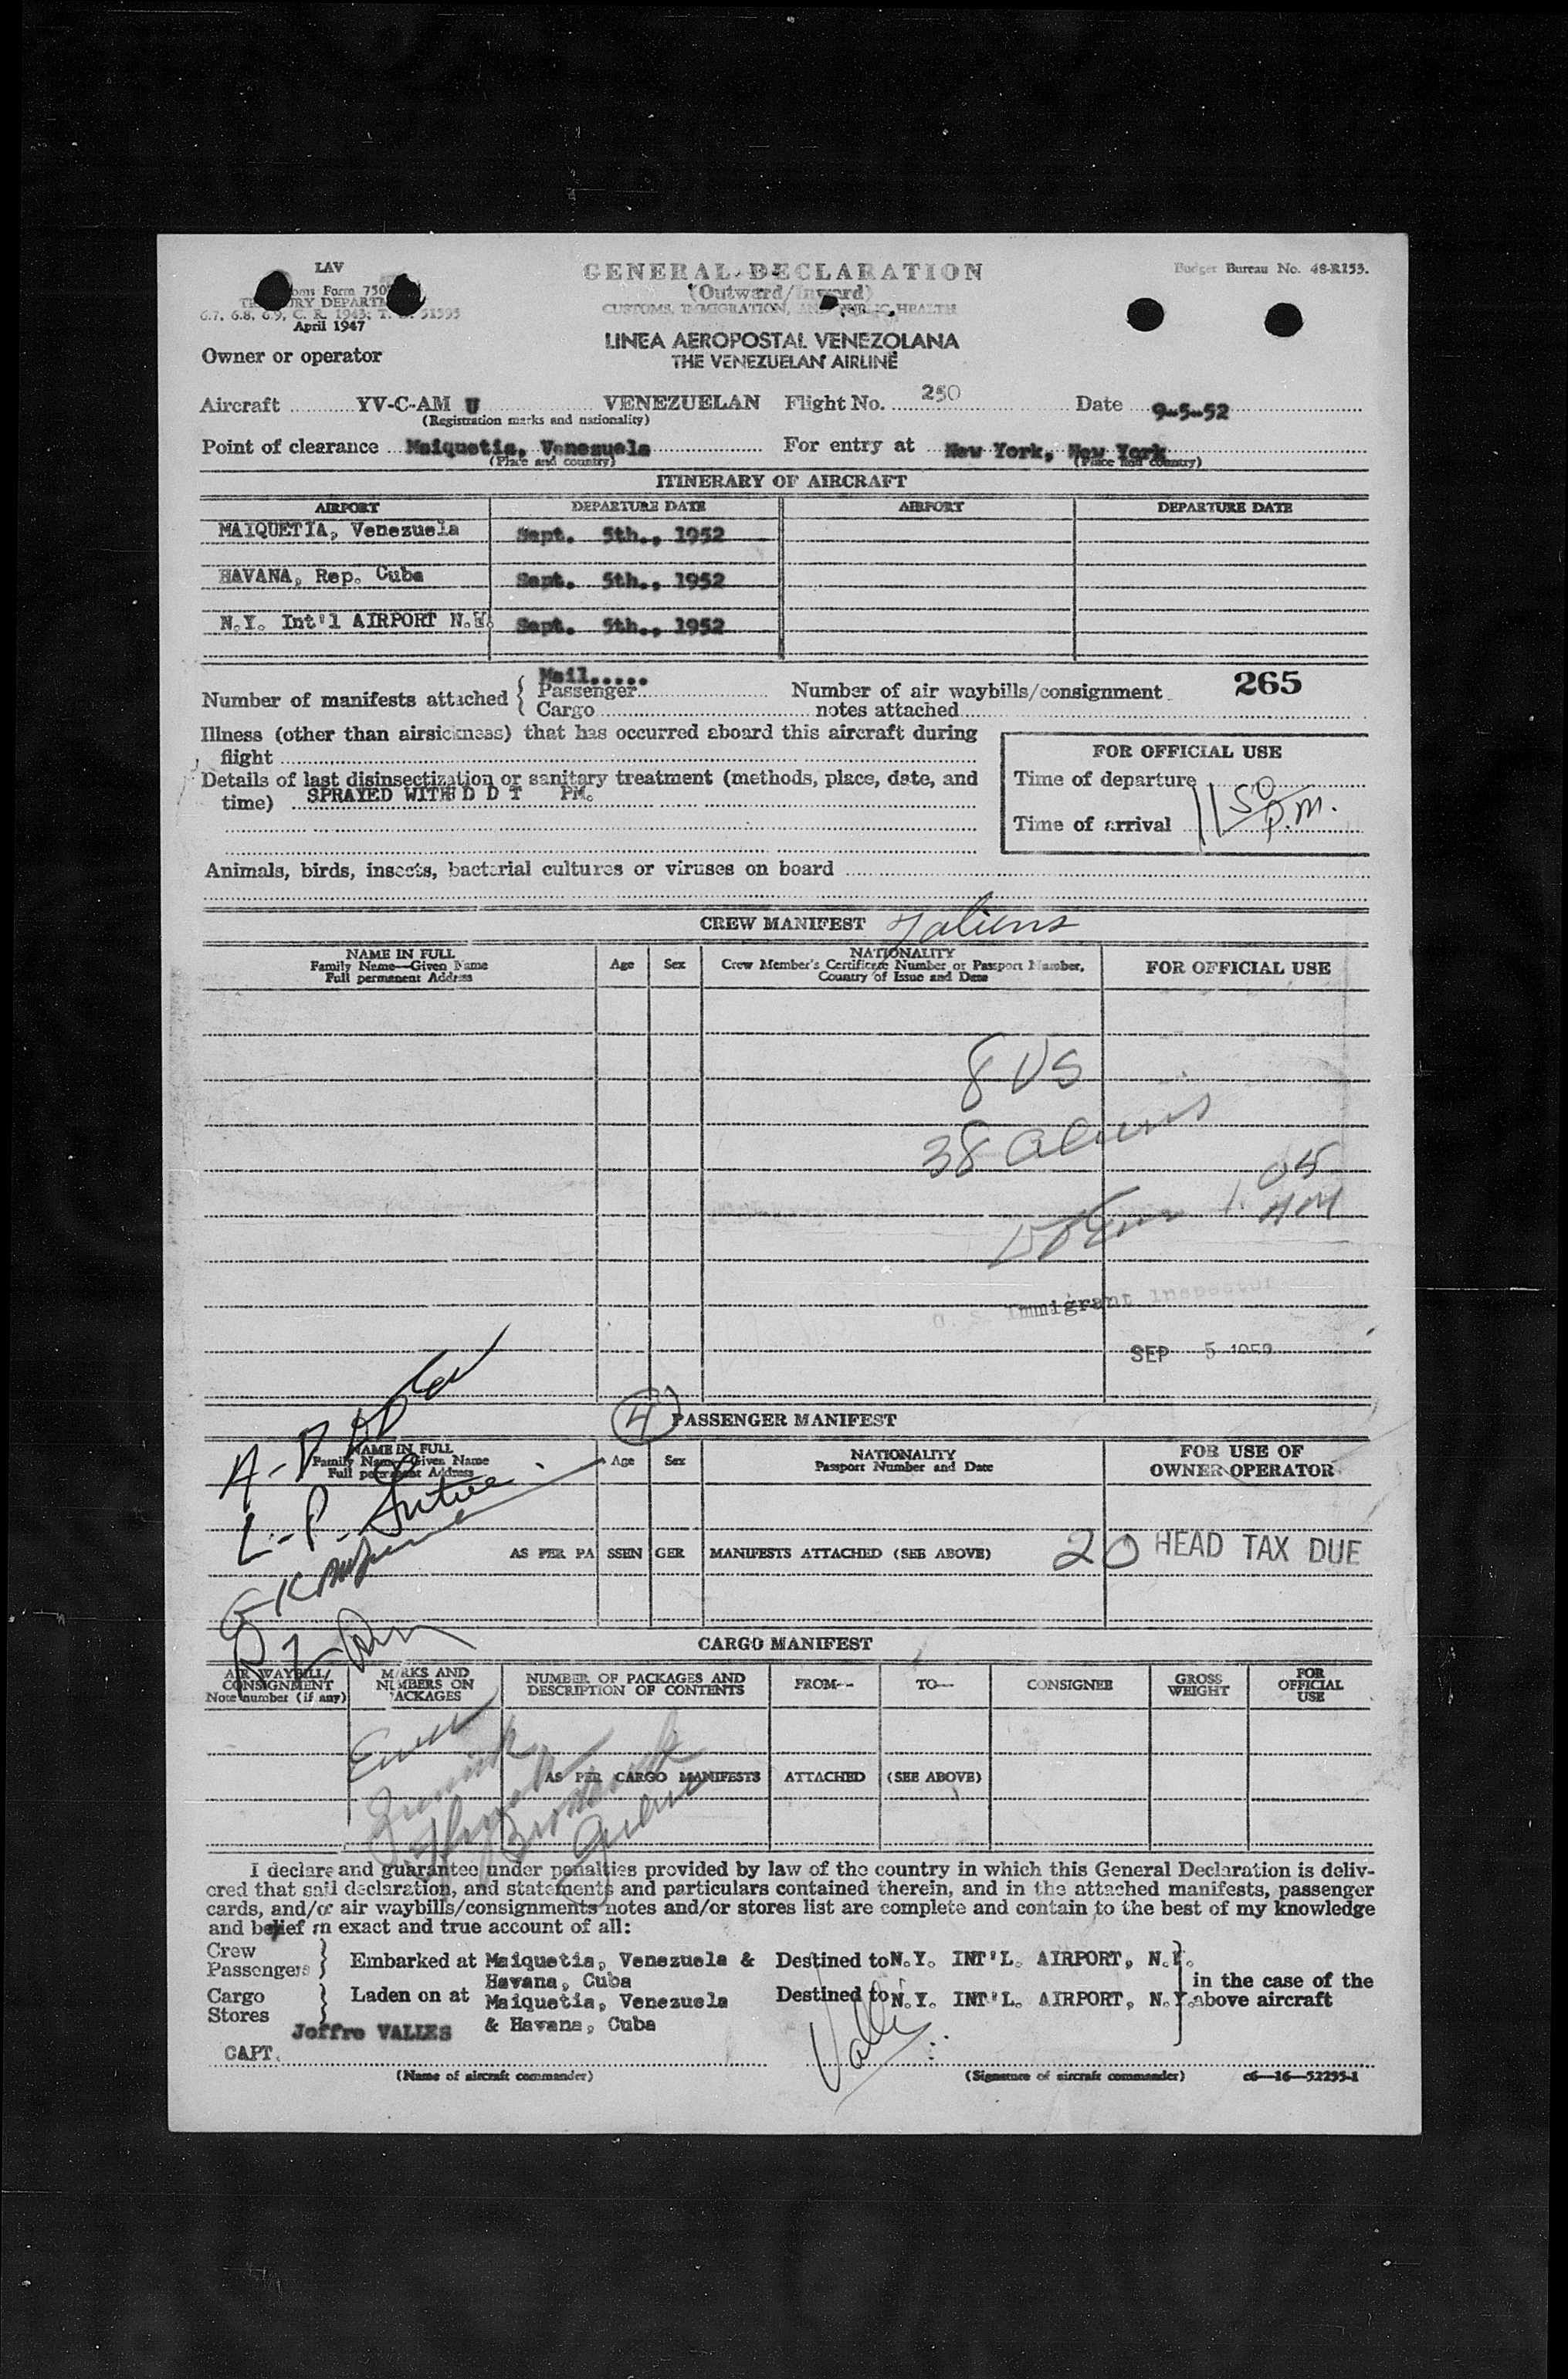 LAV
GENERAL DECLARATION
Budget Bureau No. 48-R153.
(Outward/Inward)
CUSTOMS, IMMIGRATION, AND PUBLIC HEALTH
6.7, 6.8, 6.9, C. R. 1943; T. 51595
April 1947
LINEA AEROPOSTAL VENEZOLANA
THE VENEZUELAN AIRLINE
Owner or operator
Aircraft YV-C-AM U VENEZUELAN Flight No. 250 Date 9-5-52
(Registration marks and nationality)
Point of clearance Maiquetia, Venezuela For entry at New York, New York
(Place and country) (Place and country)
ITINERARY OF AIRCRAFT
AIRPORT DEPARTURE DATE AIRPORT DEPARTURE DATE
MAIQUETIA, Venezuela Sept. 5th., 1952
HAVANA, Rep. Cuba Sept. 5th., 1952
N.Y. Int'l AIRPORT N.Y. Sept. 5th., 1952
Mail.....
Number of manifests attached { Passenger Number of air waybills/consignment 265
Cargo notes attached
Illness (other than airsickness) that has occurred aboard this aircraft during
flight
FOR OFFICIAL USE
Details of last disinsectization or sanitary treatment (methods, place, date, and
time) SPRAYED WITH D D T PM.
Time of departure
Time of arrival 11 50 P.M.
Animals, birds, insects, bacterial cultures or viruses on board
CREW MANIFEST 7 aliens
NAME IN FULL
Family Name—Given Name
Full permanent Address
Age Sex
NATIONALITY
Crew Member's Certificate Number or Passport Number,
Country of Issue and Date
FOR OFFICIAL USE
8 US
38 aliens
1.05
AM
Immigrant Inspector
SEP 5 1952
4 PASSENGER MANIFEST
NAME IN FULL
Family Name—Given Name
Full permanent Address
Age Sex
NATIONALITY
Passport Number and Date
FOR USE OF
OWNER OPERATOR
AS PER PASSENGER MANIFESTS ATTACHED (SEE ABOVE) 20 HEAD TAX DUE
CARGO MANIFEST
AIR WAYBILL/
CONSIGNMENT
Note number (if any)
MARKS AND
NUMBERS ON
PACKAGES
NUMBER OF PACKAGES AND
DESCRIPTION OF CONTENTS
FROM-- TO— CONSIGNEE
GROSS
WEIGHT
FOR
OFFICIAL
USE
AS PER CARGO MANIFESTS ATTACHED (SEE ABOVE)
I declare and guarantee under penalties provided by law of the country in which this General Declaration is deliv-
ered that said declaration, and statements and particulars contained therein, and in the attached manifests, passenger
cards, and/or air waybills/consignments notes and/or stores list are complete and contain to the best of my knowledge
and belief an exact and true account of all:
Crew
Passengers } Embarked at Maiquetia, Venezuela & Havana, Cuba Destined to N.Y. INT'L. AIRPORT, N.Y.
Cargo
Stores } Laden on at Maiquetia, Venezuela & Havana, Cuba Destined to N.Y. INT'L. AIRPORT, N.Y.
in the case of the
above aircraft
Joffre VALLES
CAPT.
(Name of aircraft commander) (Signature of aircraft commander) c6—16—52255-1